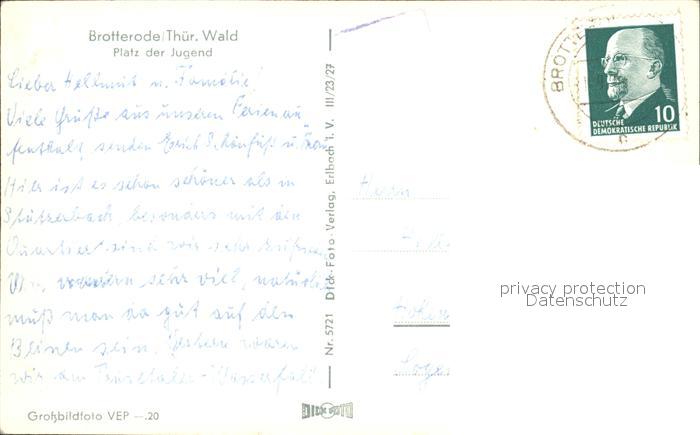 Brotterode/Thür. Wald
Platz der Jugend
Lieber Hellmut u. Familie!
Viele Grüße aus unseren Ferienau
fenthalt, senden Erich Schönfuß u. Frau
Hier ist es schon schöner als in
Stützerbach, besonders mit den
Quartier sind wir sehr zufrieden
Wir wandern sehr viel, natürlich
muß man da gut auf den
Beinen sein. Gestern waren
wir am Trusetaler-Wasserfall
Großbildfoto VEP -.20
Nr. 5721 Dick-Foto-Verlag, Erlbach i. V. III/23/27
DICK FOTO
BROTTE
DEUTSCHE
DEMOKRATISCHE REPUBLIK
10
c
Herrn
privacy protection
Datenschutz